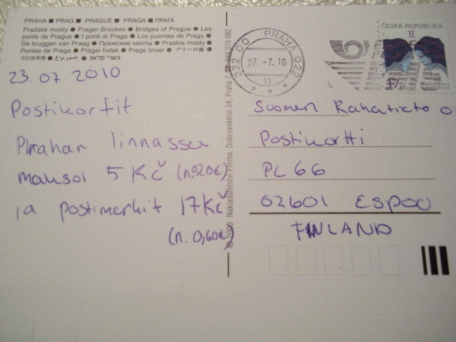 PRAHA ■ PRAG ■ PRAGUE ■ PRAGA ■ ПРАГА
Pražské mosty ● Prager Brücken ● Bridges of Prague ● Les
ponts de Prague ● I ponti di Praga ● Los puentes de Praga ●
De bruggen van Praag ● Пражские мосты ● Praskie mosty ●
23.07 2010
Postikortit
Prahan linnassa
maksoi 5 Kč (n.020€)
ja postimerkit 17Kč
(n. 0,60€)
ČESKÁ REPUBLIKA
PRAHA 022
222 00
27. -7. 10
Suomen Rahatieto
Postikortti
PL 66
02601 ESPOO
FINLAND